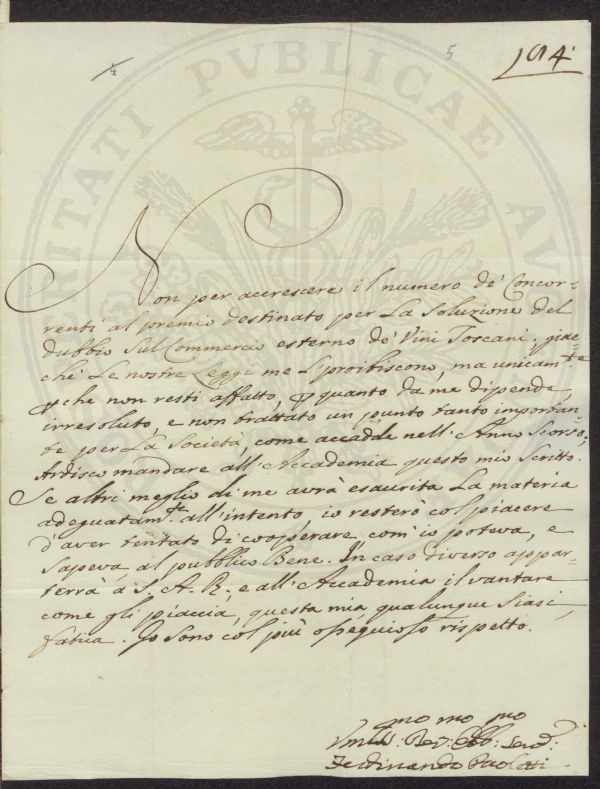 5
194.
PROSPERITATI PUBLICAE AU
Non per accrescere il numero de' Concor=
renti al premio destinato per La Soluzione del
dubbio Sul Commercio esterno de' Vini Toscani, giac=
chè Le nostre Leggi me L'proibiscono, ma unicam.te
che non resti affatto, quanto da me dipende,
irresoluto, e non trattato un punto tanto importan=
te per La Società, come accadde nell'Anno Scorso,
Ardisco mandare all'Accademia questo mio Scritto.
Se altri meglio di me avrà esaurita La materia
adeguatam.te all'intento, io resterò col piacere
d'aver tentato di cooperare, com'io poteva, e
Sapeva, al pubblico Bene. In caso diverso appar=
terrà a S. A. R., e all'Accademia il vantare
come gli piaccia, questa mia qualunque Siasi
fatica. Io Sono col più ossequioso rispetto.
mo mo mo
Vmil: Dev: Obb: Serv:
Ferdinando Paoletti